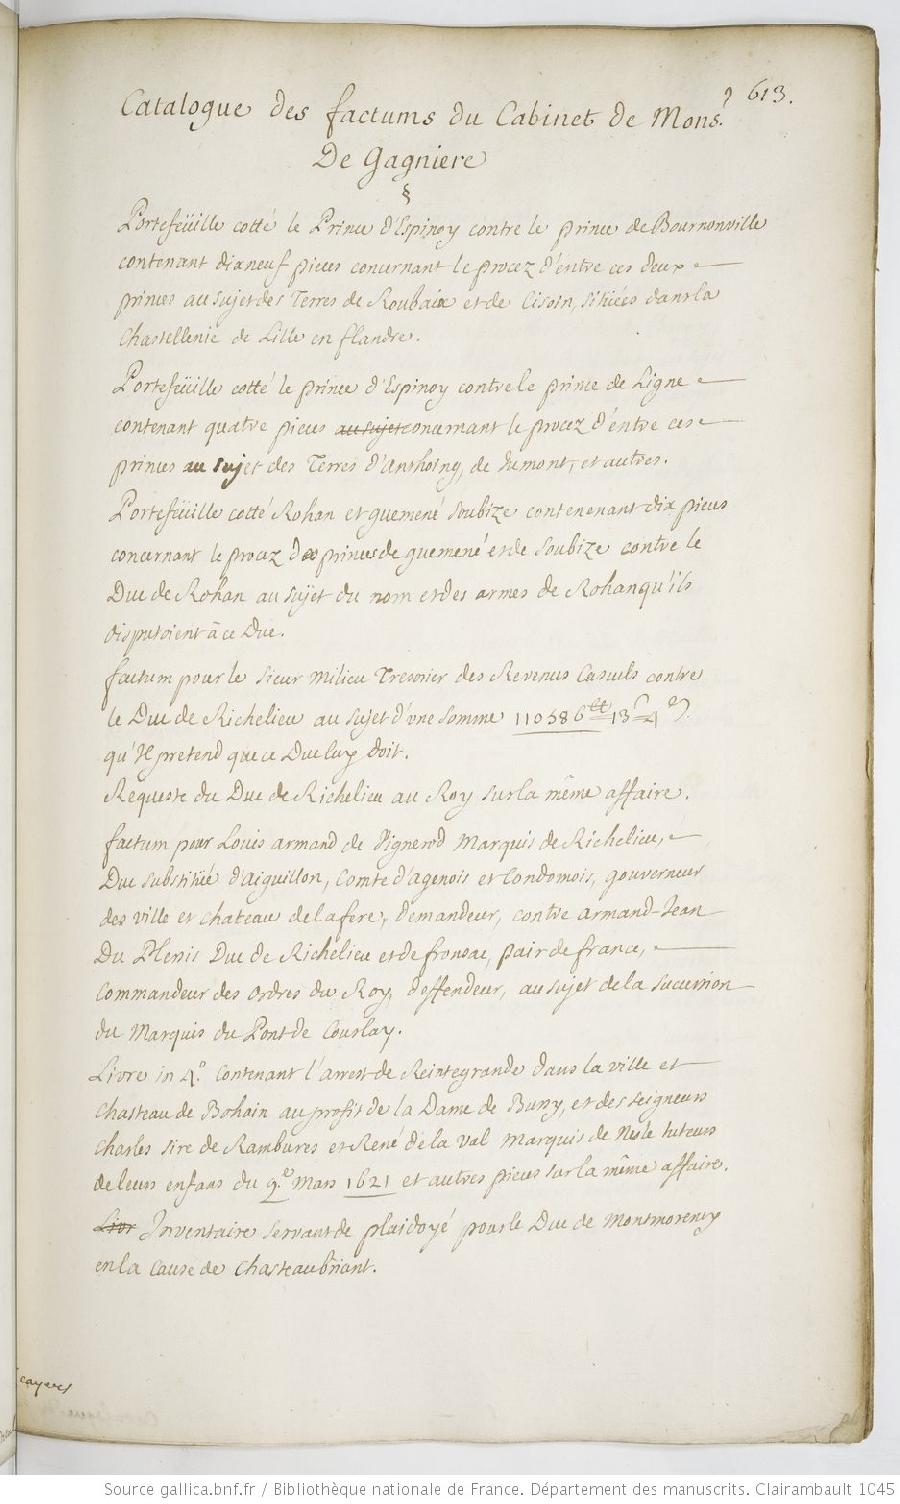 613.
Catalogue des factums du Cabinet de Monsr.
De Gagniere
§
Portefeüille cotté le Prince d'Espinoy contre le prince de Bournonville
contenant dixneuf pieces concernant le procez d'entre ces deux
princes au sujet des Terres de Roubaix et de Cisoin, sitüées dans la
Chastellenie de Lille en flandre.
Portefeüille cotté le prince d'Espinoy contre le prince de Ligne
contenant quatre pieces au sujet concernant le procez d'entre ces
princes au sujet des Terres d'Anthoing, de et autres.
Portefeüille cotté Rohan et guemené Soubize contenenant dix pieces
concernant le procez des princes de guemené et de Soubize contre le
Duc de Rohan au sujet du nom et des armes de Rohan qu'ils
disputoient à ce Duc.
factum pour le Sieur Milieu Tresorier des Revenus Casuels contre
le Duc de Richelieu au sujet d'vne somme 110586tt 13s 4d
qu'il pretend que ce Duc luy doit.
Requeste du Duc de Richelieu au Roy sur la même affaire.
factum pour Louis armand de Vignerod Marquis de Richelieu,
Duc substitüé d'aiguillon, Comte d'agenois et Condomois, gouverneur
des ville et chateau de la fere, demandeur, contre armand-Jean
Du Plessis Duc de Richelieu et de fronsac, pair de france,
Commandeur des ordres du Roy, deffendeur, au sujet de la succession
du Marquis du Pont de Courlay.
Livre in 4.o contenant l'arrest de Reintegrande dans la ville et
chasteau de Bohain au profit de la Dame de Bussy, et des seigneurs
Charles sire de Rambures et René de la val Marquis de Nesle tuteurs
de leurs enfans du 9.e Mars 1621 et autres pieces sur la même affaire.
Livr Inventaire servant de plaidoyé pour le Duc de Montmorency
en la cause de Chasteaubriant.
Source gallica.bnf.fr / Bibliothèque nationale de France. Département des manuscrits. Clairambault 1045